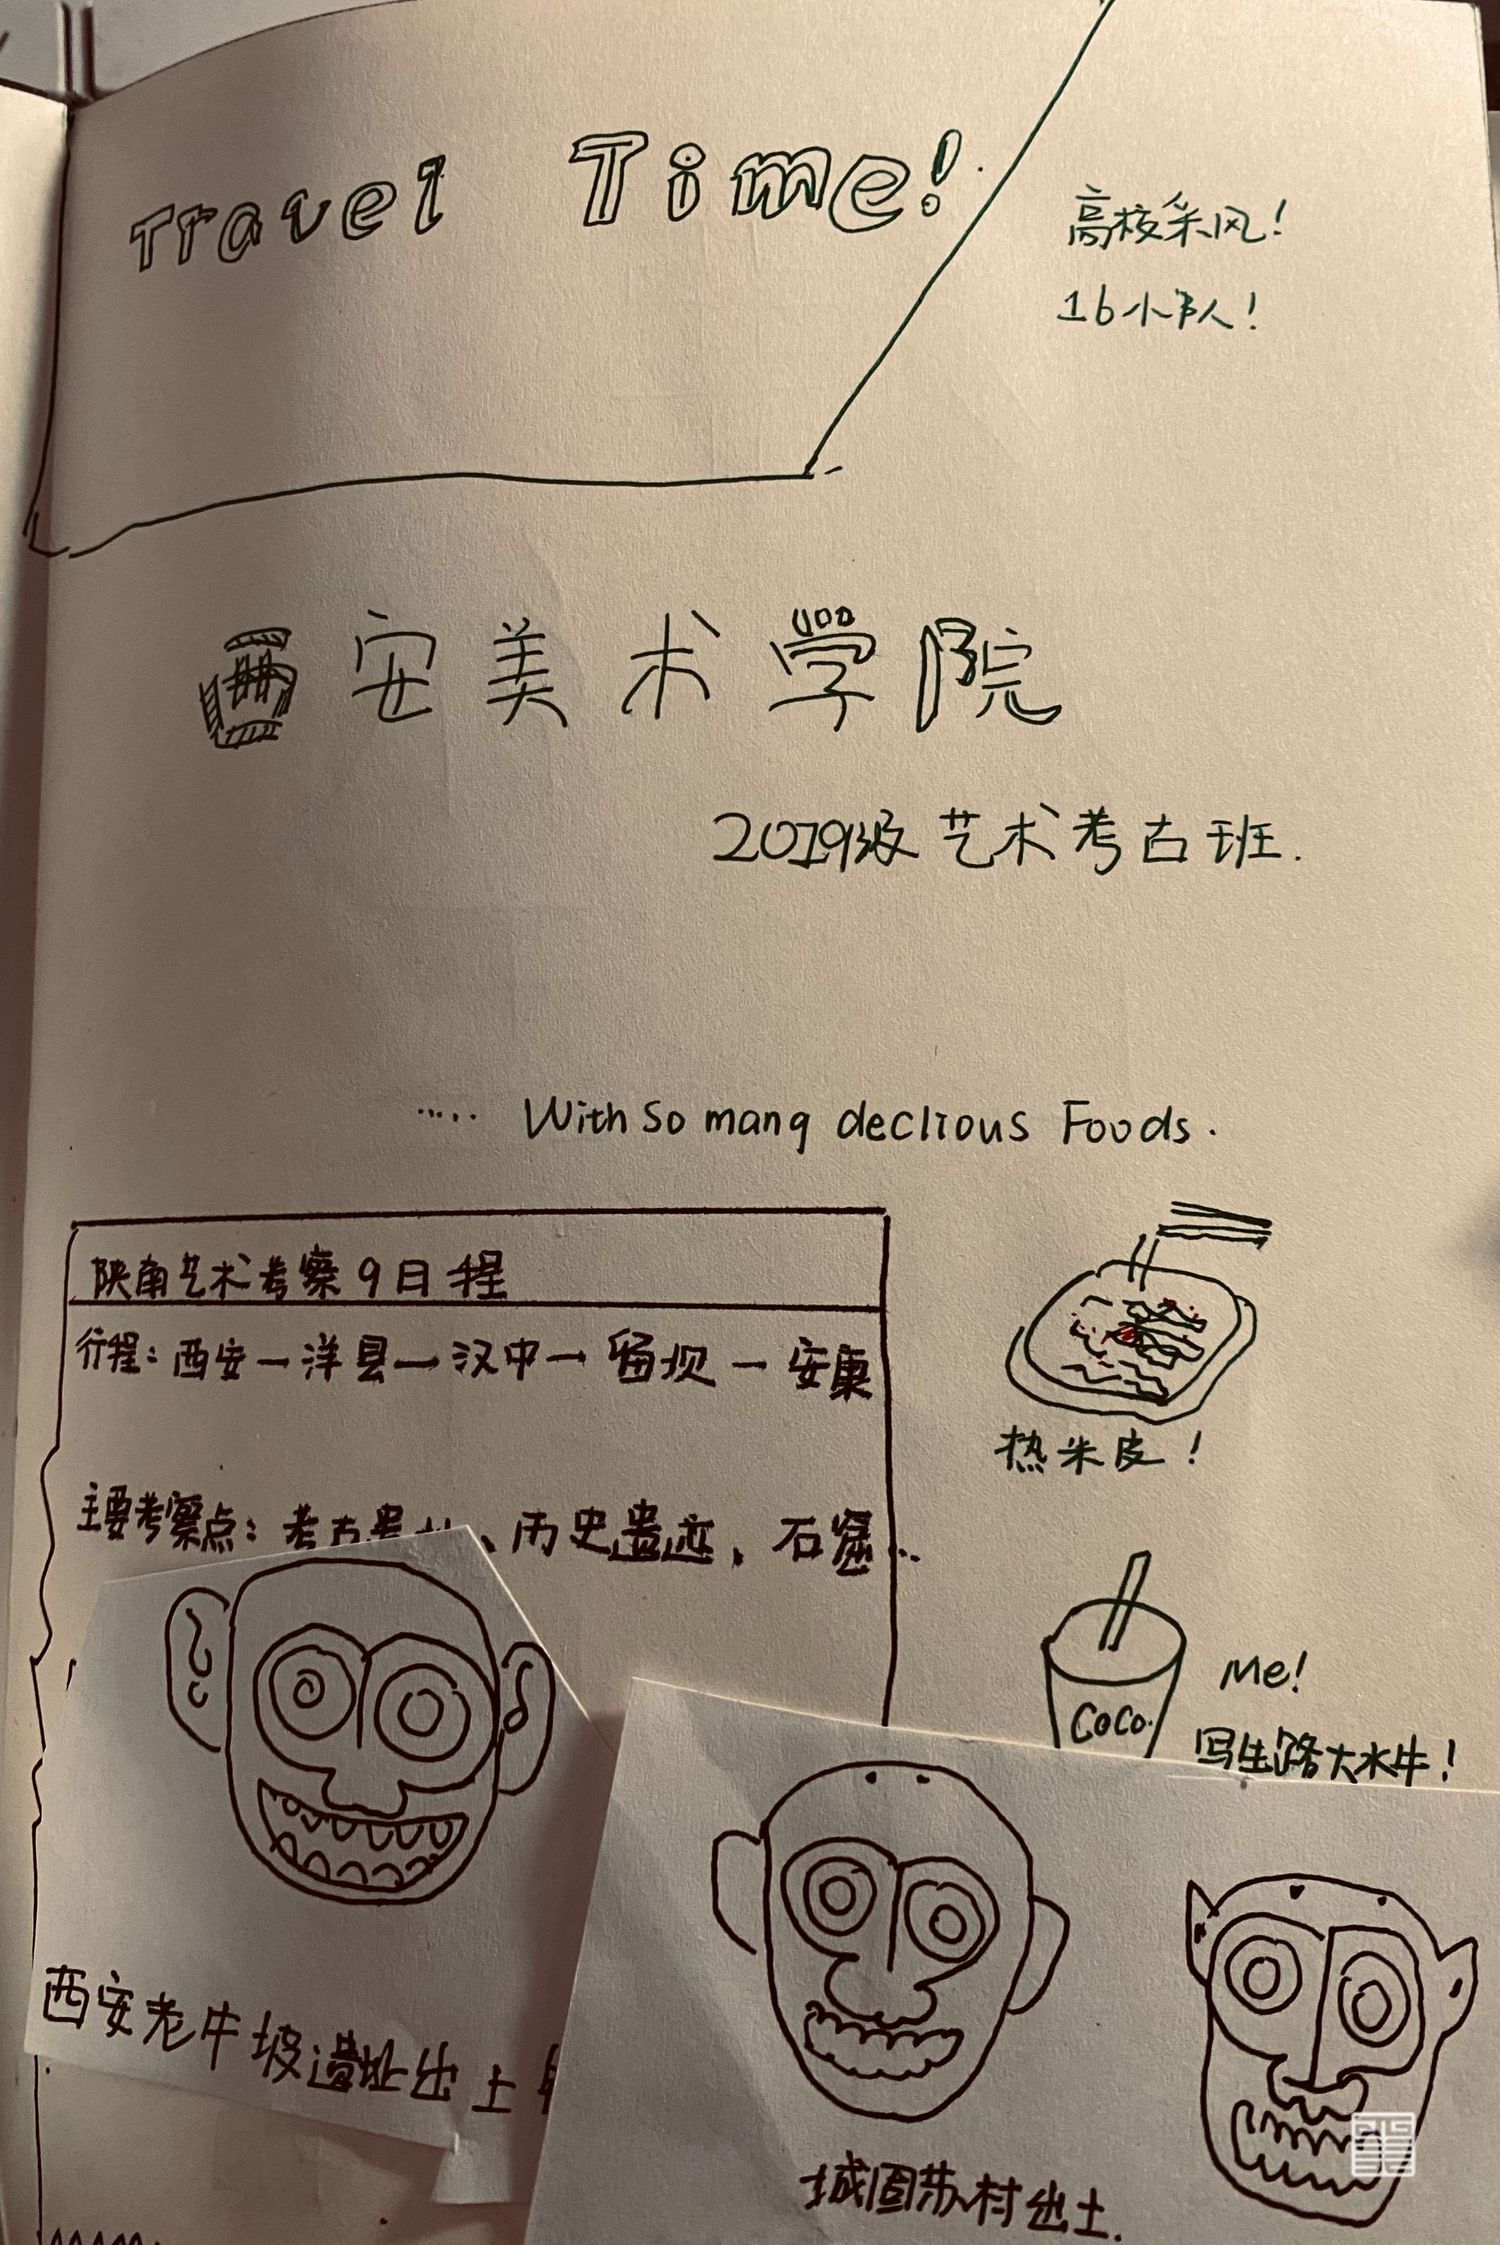 Travel Time!
高校采风!
16小队!
西安美术学院
2019级艺术考古班.
..... With so mang declious Foods.
陕南艺术考察9日程
行程:西安—洋县—汉中—留坝—安康
热米皮!
主要考察点:考古遗址、历史遗迹,石窟...
CoCo.
Me!
写生路大水牛!
西安老牛坡遗址出土
城固苏村出土.